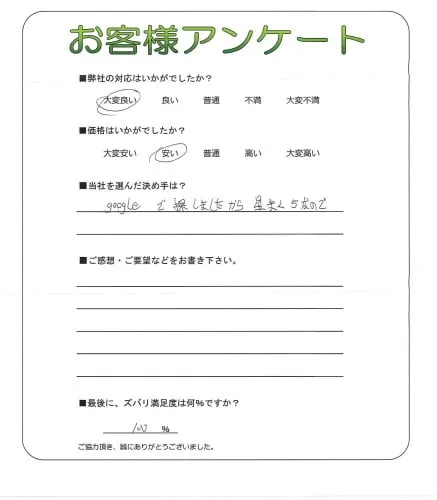 お客様アンケート
■弊社の対応はいかがでしたか？
大変良い 良い 普通 不満 大変不満
■価格はいかがでしたか？
大変安い 安い 普通 高い 大変高い
■当社を選んだ決め手は？
google で 探しましたから 星まん5なので
■ご感想・ご要望などをお書き下さい。
■最後に、ズバリ満足度は何%ですか？
100 %
ご協力頂き、誠にありがとうございました。